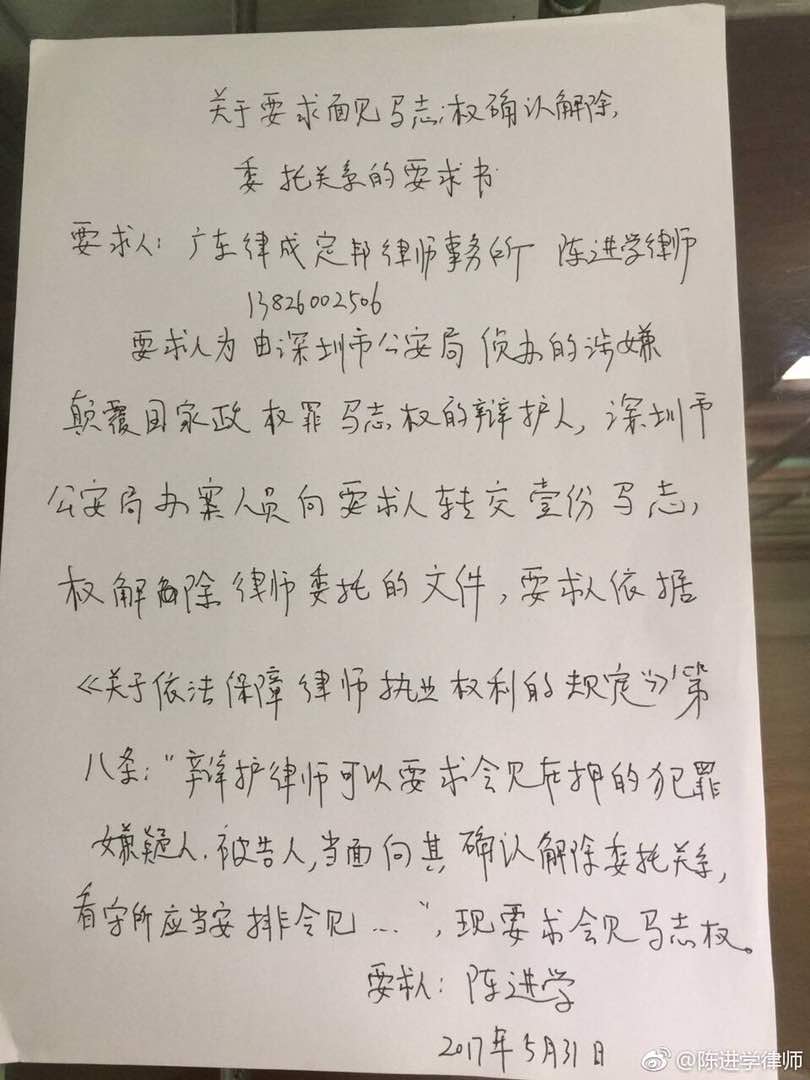 关于要求面见马志权确认解除
委托关系的要求书
要求人：广东律成定邦律师事务所 陈进学律师
13826002506
要求人为由深圳市公安局侦办的涉嫌
颠覆国家政权罪马志权的辩护人，深圳市
公安局办案人员向要求人转交壹份马志
权解除律师委托的文件，要求人依据
《关于依法保障律师执业权利的规定》第
八条："辩护律师可以要求会见在押的犯罪
嫌疑人、被告人，当面向其确认解除委托关系，
看守所应当安排会见…"，现要求会见马志权。
要求人：陈进学
2017年5月31日
@陈进学律师